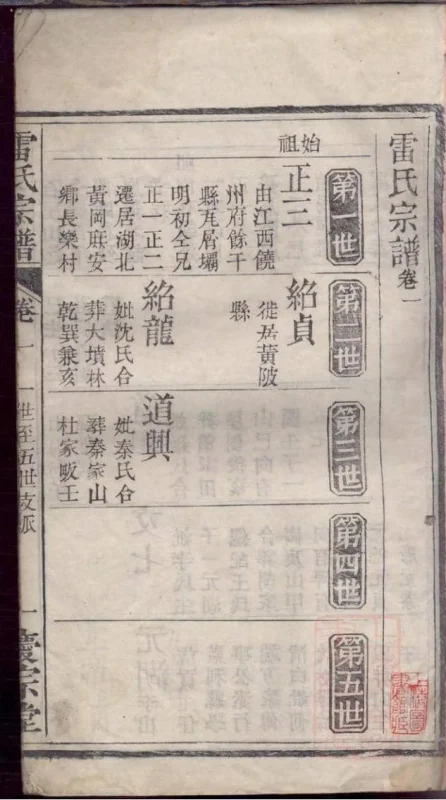 雷氏宗譜卷一
第一世
第二世
第三世
第四世
第五世
始祖
正三
由江西饒
州府餘干
縣瓦屑壩
明初仝兄
正一正二
遷居湖北
黃岡庥安
鄉長樂村
紹貞
徙居黃陂
縣
紹龍
妣沈氏合
葬大墳林
乾巽兼亥
道興
妣秦氏合
葬秦家山
杜家畈王
雷氏宗譜
卷一
一世至五世支派
一
宗堂